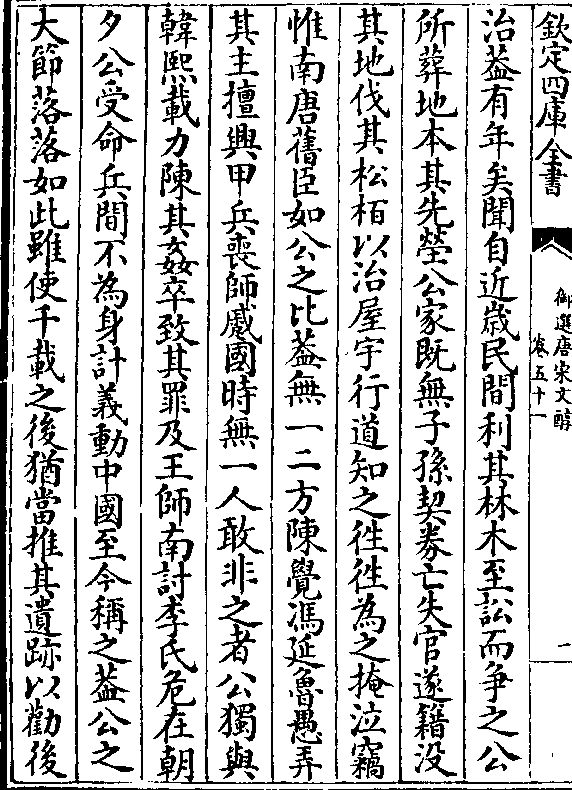 欽定四庫全書
御選唐宋文醇
卷五十一
一
治葢有年矣聞自近歳民間利其林木至訟而争之公
所葬地本其先塋公家既無子孫契劵亡失官遂籍没
其地伐其松栢以治屋宇行道知之徃徃為之掩泣竊
惟南唐舊臣如公之比葢無一二方陳覺馮延魯愚弄
其主擅興甲兵喪師蹙國時無一人敢非之者公獨與
韓熙載力陳其姦卒致其罪及王師南討李氏危在朝
夕公受命兵間不為身計義動中國至今稱之葢公之
大節落落如此雖使千載之後猶當推其遺跡以勸後